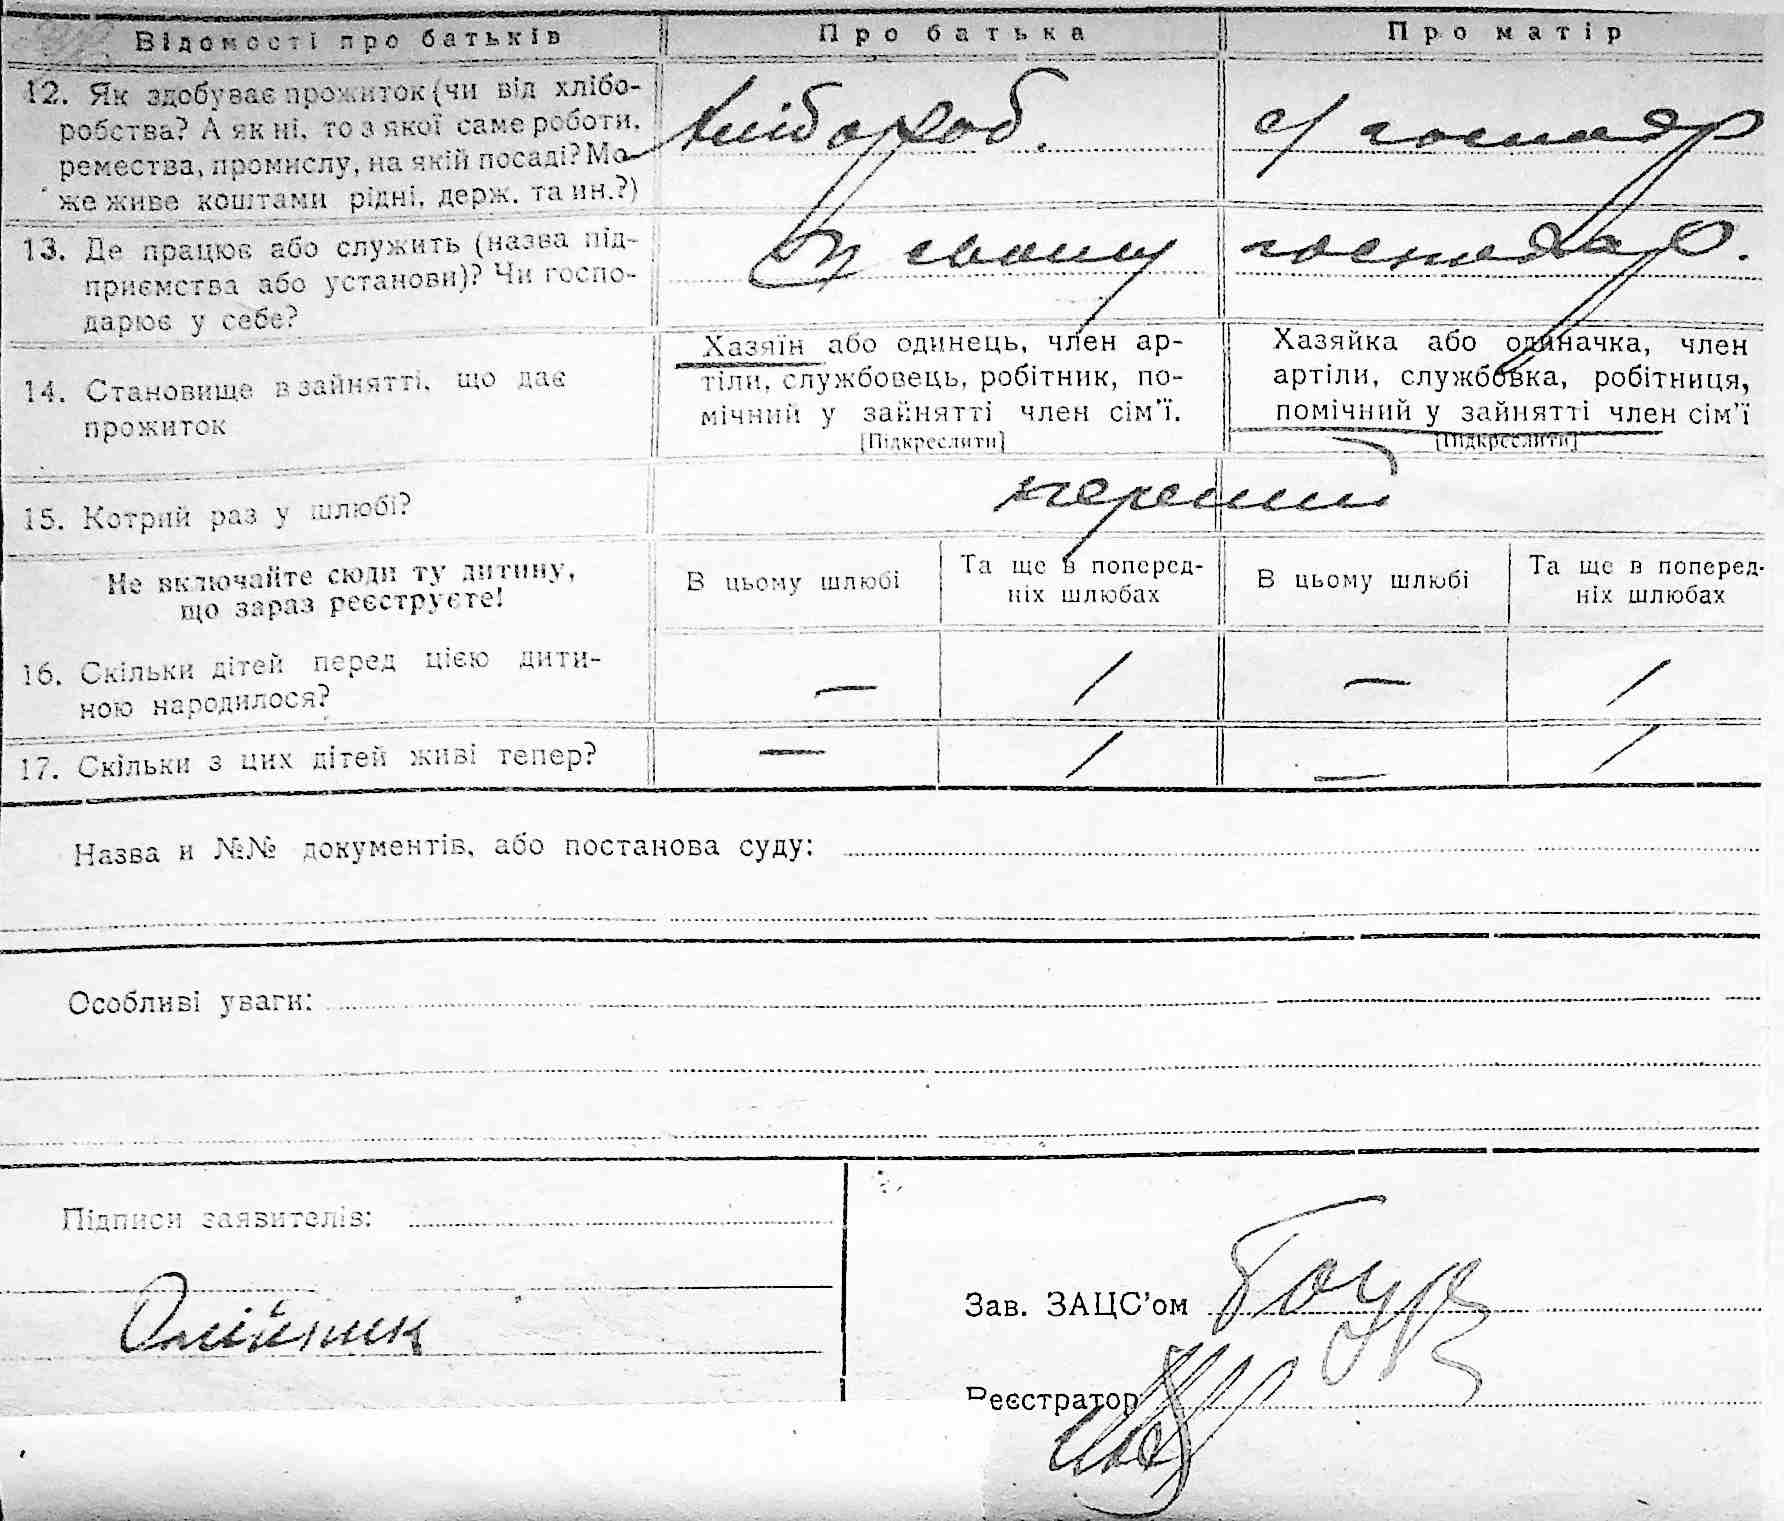 Відомості про батьків Про батька Про матір
12. Як здобуває прожиток (чи від хлібо-
робства? А як ні, то з якої саме роботи,
ремества, промислу, на якій посаді? Мо-
же живе коштами рідні, держ. та ин.?)
хлібороб. с/ господар
13. Де працює або служить (назва під-
приємства або установи)? Чи госпо-
дарює у себе?
В своему господар.
14. Становище в зайнятті, що дає
прожиток
Хазяїн або одинець, член ар-
тіли, службовець, робітник, по-
мічний у зайнятті член сім'ї.
[Підкреслити]
Хазяйка або одиначка, член
артіли, службовка, робітниця,
помічний у зайнятті член сім'ї
[Підкреслити]
15. Котрий раз у шлюбі? перший
Не включайте сюди ту дитину,
що зараз реєструєте!
В цьому шлюбі
Та ще в поперед-
ніх шлюбах
В цьому шлюбі
Та ще в поперед-
ніх шлюбах
16. Скільки дітей перед цією дити-
ною народилося?
— / — /
17. Скільки з цих дітей живі тепер? — / — /
Назва и №№ документів, або постанова суду:
Особливі уваги:
Підписи заявителів:
Олійник
Зав. ЗАЦС'ом
Реєстратор